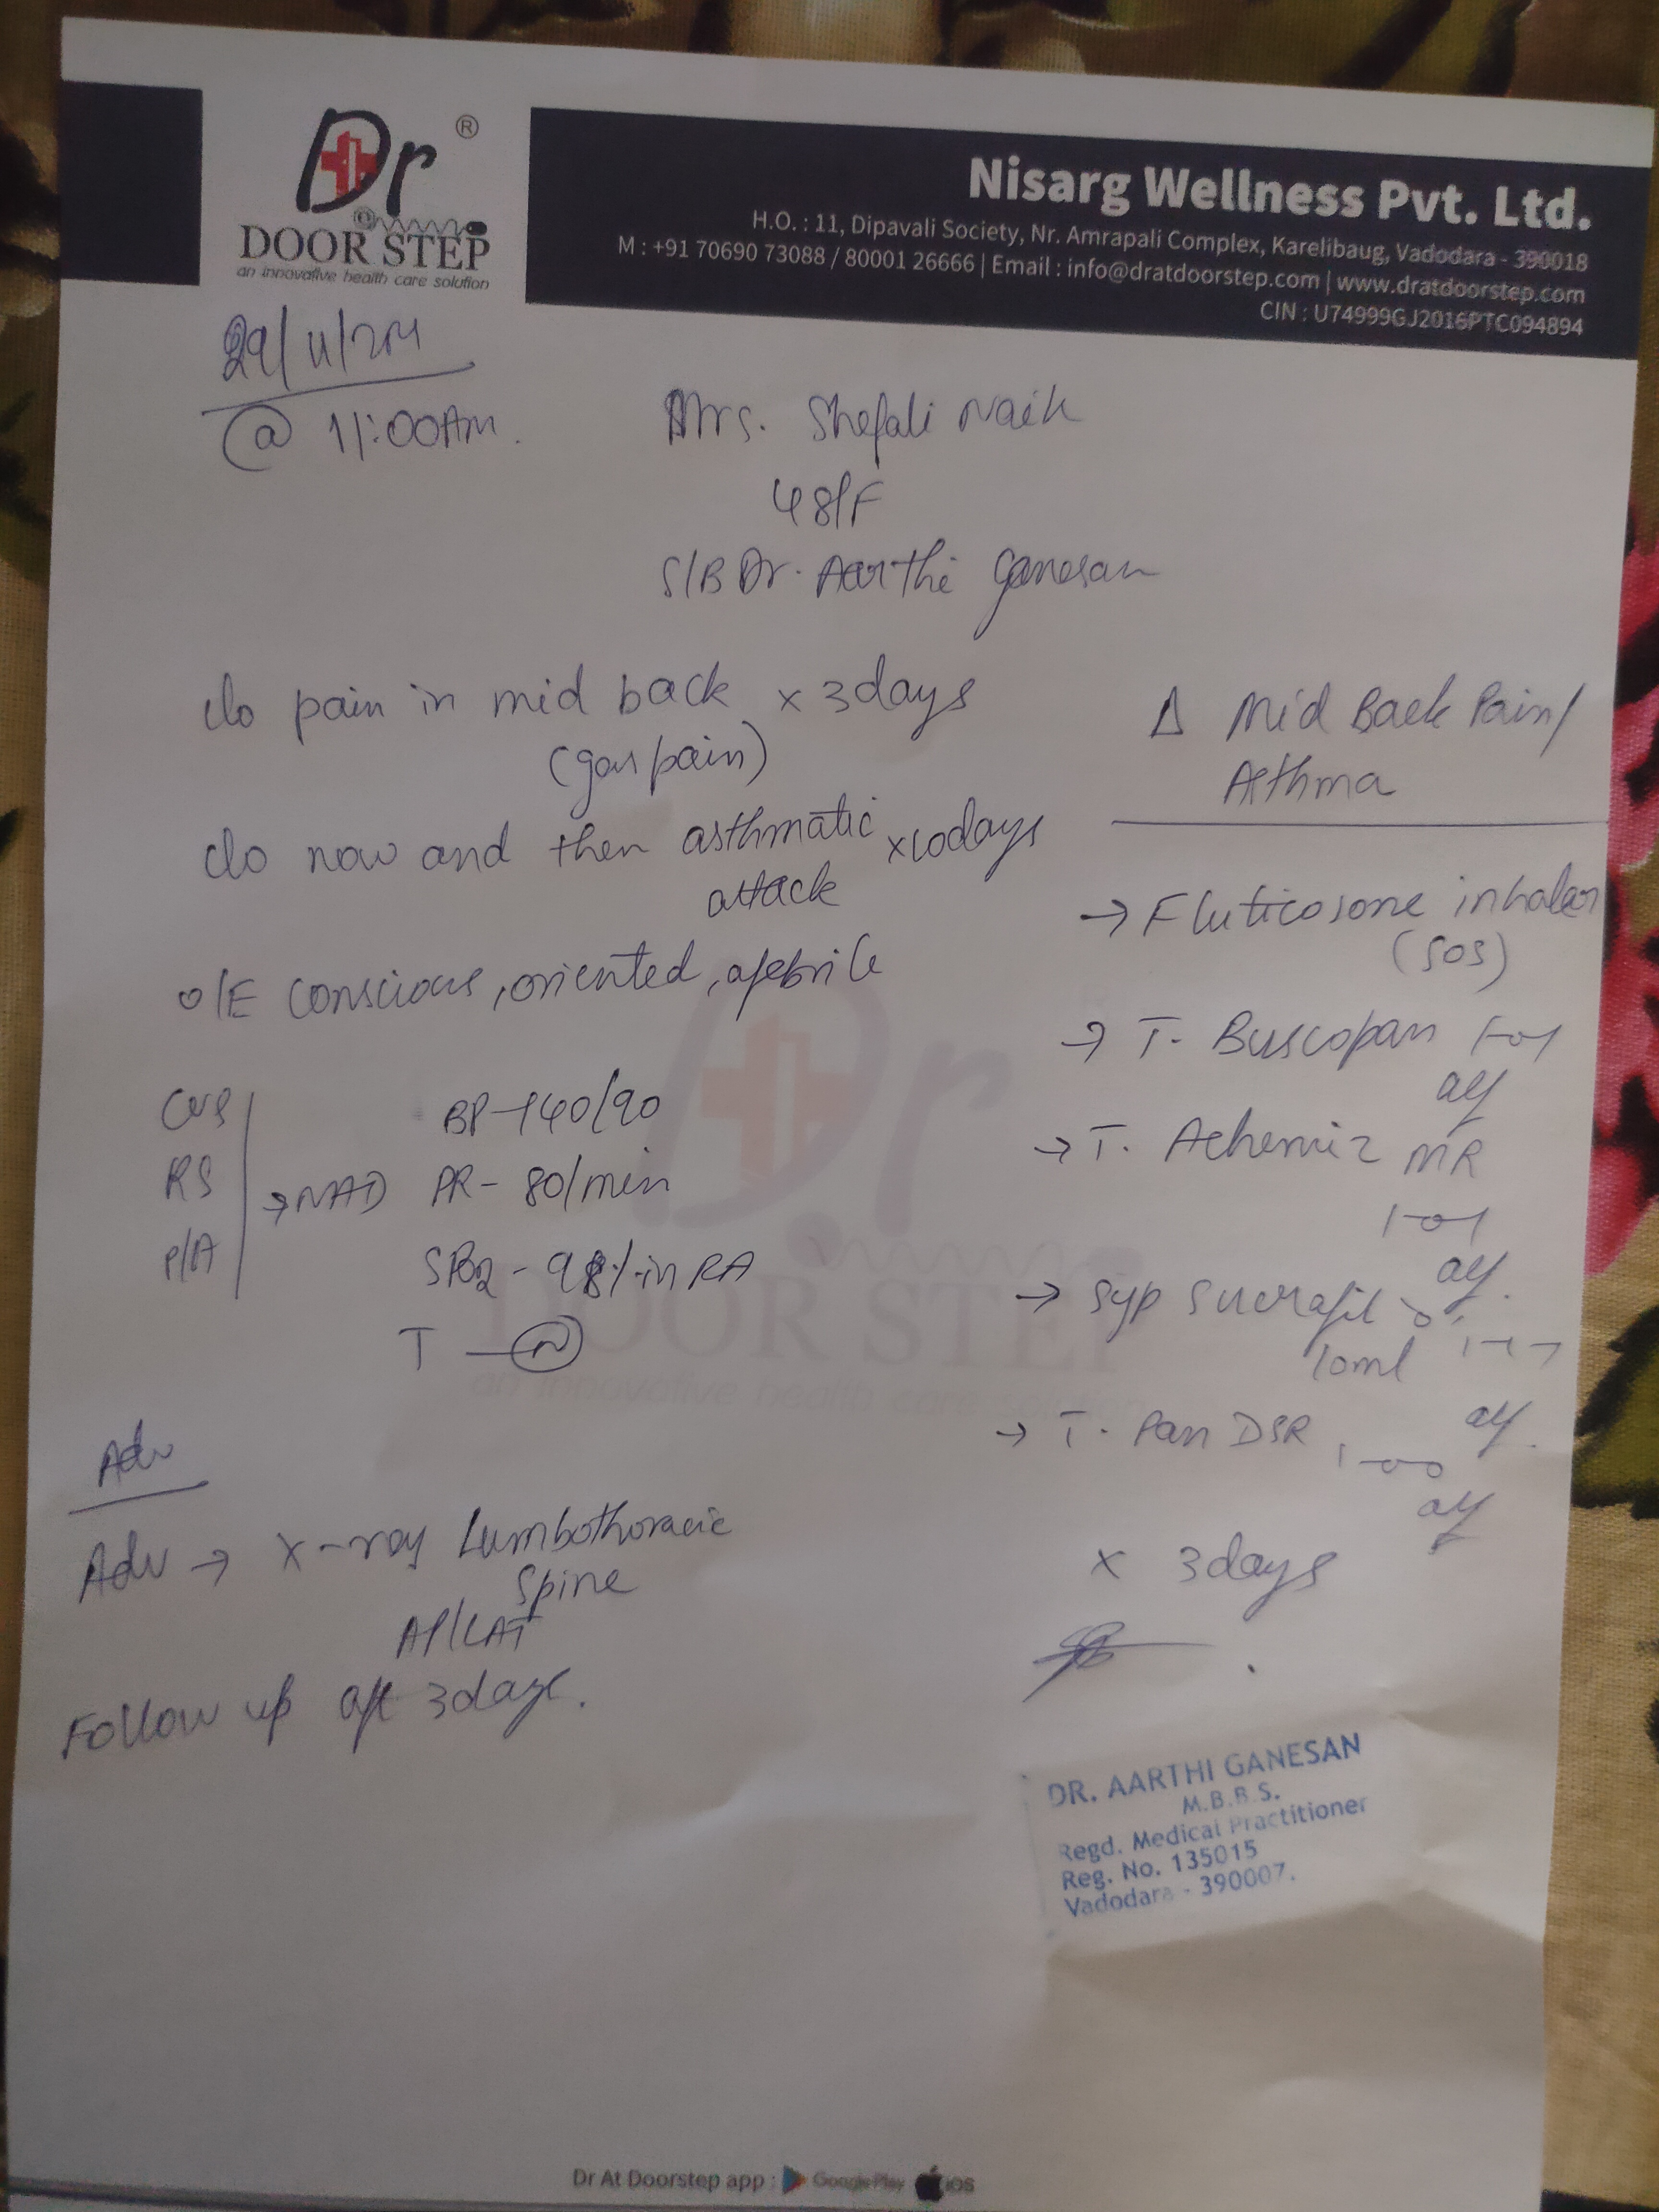 Dr ®
@
DOOR STEP
an innovative health care solution
Nisarg Wellness Pvt. Ltd.
H.O. : 11, Dipavali Society, Nr. Amrapali Complex, Karelibaug, Vadodara - 390018
M : +91 70690 73088 / 80001 26666 | Email : info@dratdoorstep.com | www.dratdoorstep.com
CIN : U74999GJ2016PTC094894
@ 11:00AM.
Mrs. Shefali Naik
48/F
S/B Dr. Aarthi Ganesan
c/o pain in mid back x 3days
(gas pain)
c/o now and then asthmatic
attack x10days
o/E conscious, oriented, afebrile
CVS
RS
P/A
→ NAD
BP - 140/90
PR - 80/min
SPO2 - 98% in RA
T - N
Adv
Adv → X-ray Lumbothoracic
Spine
AP/LAT
Follow up aft 3days.
Δ Mid Back Pain/
Asthma
→ Fluticosone inhaler
(SOS)
→ T. Buscopan 1-0-1
→ T. MR
1-0-1
→ Syp Sucrafil O
10ml 1-1-1
→ T. Pan DSR 1-0-0
x 3days
DR. AARTHI GANESAN
M.B.B.S.
Regd. Medical Practitioner
Reg. No. 135015
Vadodara - 390007.
Dr
DOOR STEP
an innovative health care solution
Dr At Doorstep app : Google Play iOS